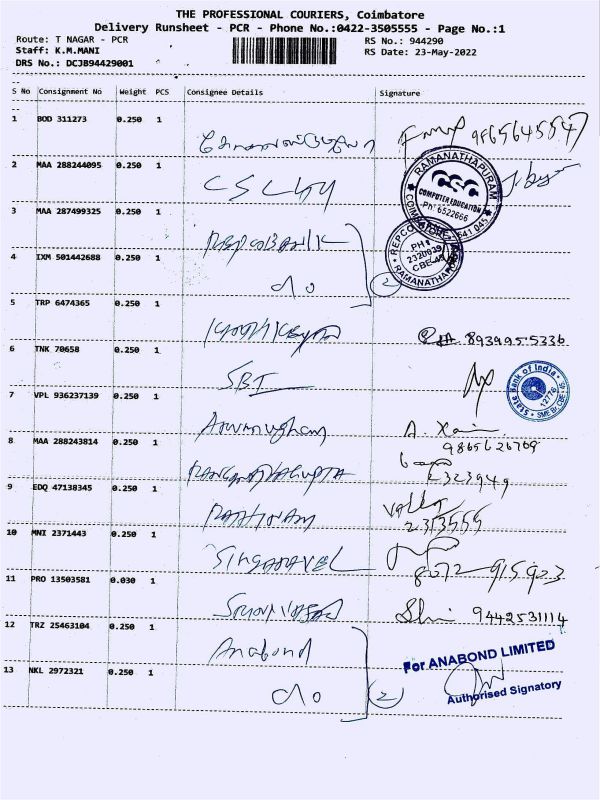 THE PROFESSIONAL COURIERS, Coimbatore
Delivery Runsheet - PCR - Phone No.:0422-3505555 - Page No.:1
Route: T NAGAR - PCR
RS No.: 944290
Staff: K.M.MANI
RS Date: 23-May-2022
DRS No.: DCJB94429001
S No Consignment No Weight PCS Consignee Details Signature
1 BOD 311273 0.250 1
9865645547
2 MAA 288244095 0.250 1
RAMANATHAPURAM
CSC
COMPUTER EDUCATION
Ph: 6522666
COIMBATORE - 641 045
3 MAA 287499325 0.250 1 REPCO BANK
REPCO
PH:
2320939
CBE-45
RAMANATHAPURAM
4 IXM 501442688 0.250 1 do 2
5 TRP 6474365 0.250 1
8939955336
6 TNK 70658 0.250 1 SBI
State Bank of India
12776
7 VPL 936237139 0.250 1 Arumugham
9865626769
8 MAA 288243814 0.250 1 RANGANATHAGUPTA
2323949
9 EDQ 47138345 0.250 1 RATHINAM
2313555
10 MNI 2371443 0.250 1 SINGARAVEL
11 PRO 13503581 0.030 1
9442531114
12 TRZ 25463104 0.250 1 Anabond
For ANABOND LIMITED
13 NKL 2972321 0.250 1 do 2
Authorised Signatory